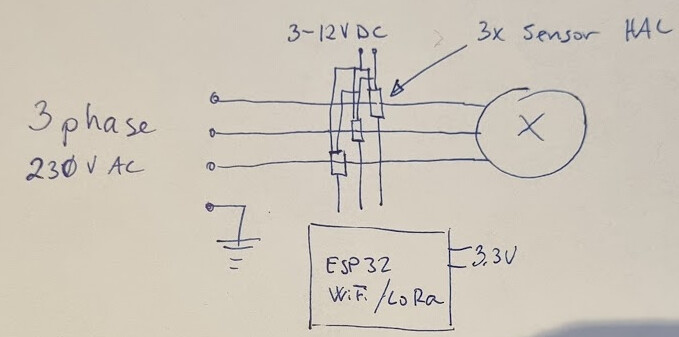 3-12V DC
3x Sensor HAL
3 phase
230V AC
X
ESP32
WiFi/LoRa
3.3V